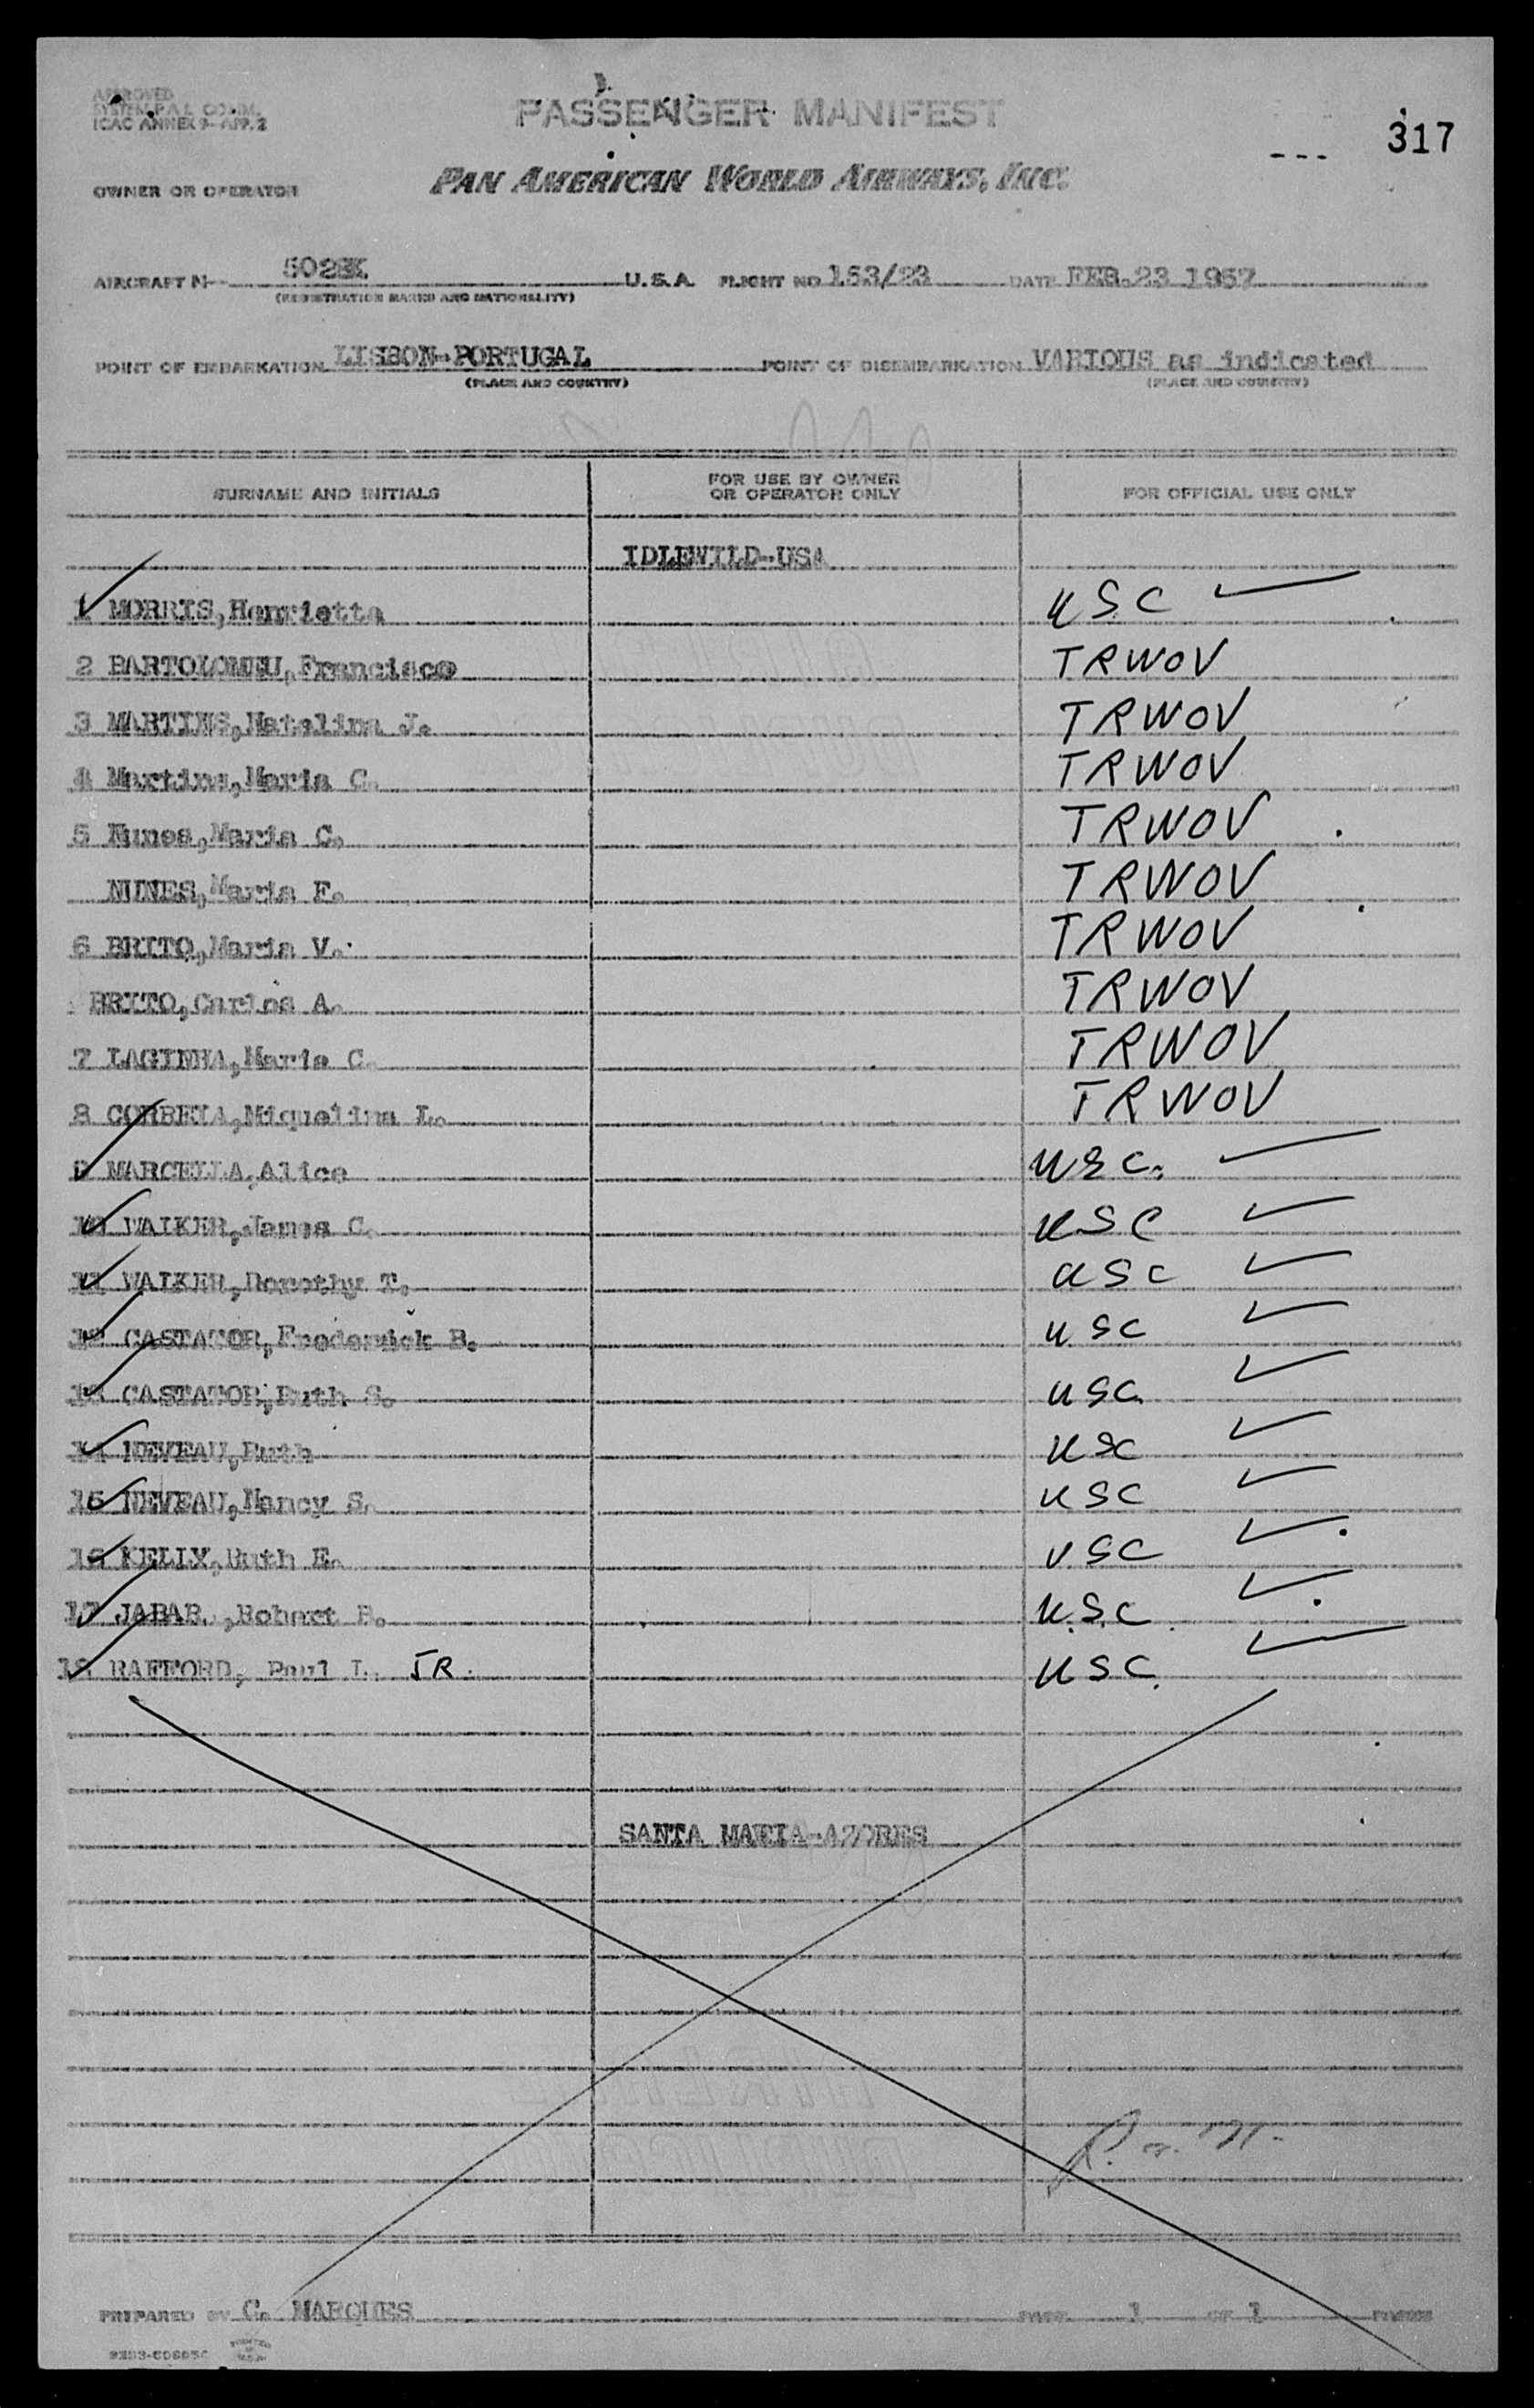 APPROVED
SYSTEM P.A.L. COMM.
ICAC ANNEX 9-APP. 2
PASSENGER MANIFEST
--- 317
OWNER OR OPERATOR PAN AMERICAN WORLD AIRWAYS, INC.
AIRCRAFT N-- U.S.A. FLIGHT NO 153/23 DATE FEB.23 1957
(REGISTRATION MARKS AND NATIONALITY)
POINT OF EMBARKATION LISBON-PORTUGAL POINT OF DISEMBARKATION VARIOUS as indicated
(PLACE AND COUNTRY) (PLACE AND COUNTRY)
SURNAME AND INITIALS FOR USE BY OWNER OR OPERATOR ONLY FOR OFFICIAL USE ONLY
IDLEWILD-USA
1 MORRIS, Henrietta USC
2 BARTOLOMEU, Francisco TRWOV
3 MARTINS, Natalina J. TRWOV
4 Martins, Maria C. TRWOV
5 Nunes, Maria C. TRWOV
NUNES, Maria F. TRWOV
6 BRITO, Maria V. TRWOV
BRITO, Carlos A. TRWOV
7 LAGINHA, Maria C. TRWOV
8 CORREIA, Miquelina L. TRWOV
9 MARCELLA, Alice USC.
10 WALKER, James C. USC
11 WALKER, Dorothy T. USC
12 CASTATOR, Frederick B. USC
13 CASTATOR, Ruth S. USC
14 NEVEAU, Ruth USC
15 NEVEAU, Nancy S. USC
16 KELIX, Ruth E. USC
17 JABAR, Robert U.S.C.
18 RAFFORD, Paul JR. USC.
SANTA MARIA-AZORES
PREPARED BY C. MARQUES PAGE 1 OF 1 PAGES
PRINTED
IN
U.S.A.